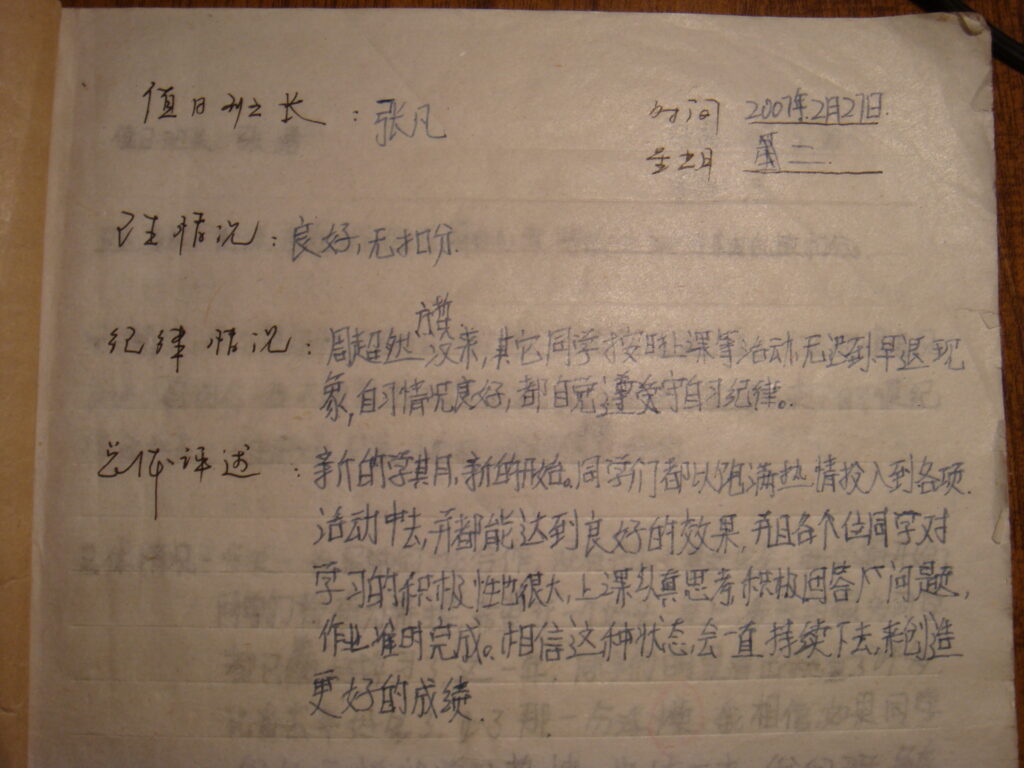 值日班长：张凡
时间 2007年2月27日
星期 星二
卫生情况：良好，无扣分.
纪律情况：周超然没来，其它同学按时上课等活动，无迟到早退现
象，自习情况良好，都自觉遵守自习纪律。
总体评述：新的学期，新的开始。同学们都以饱满热情投入到各项
活动中去，并都能达到良好的效果，并且各个位同学对
学习的积极性也很大，上课认真思考，积极回答问题，
作业准时完成。相信这种状态，会一直持续下去，来创造
更好的成绩.